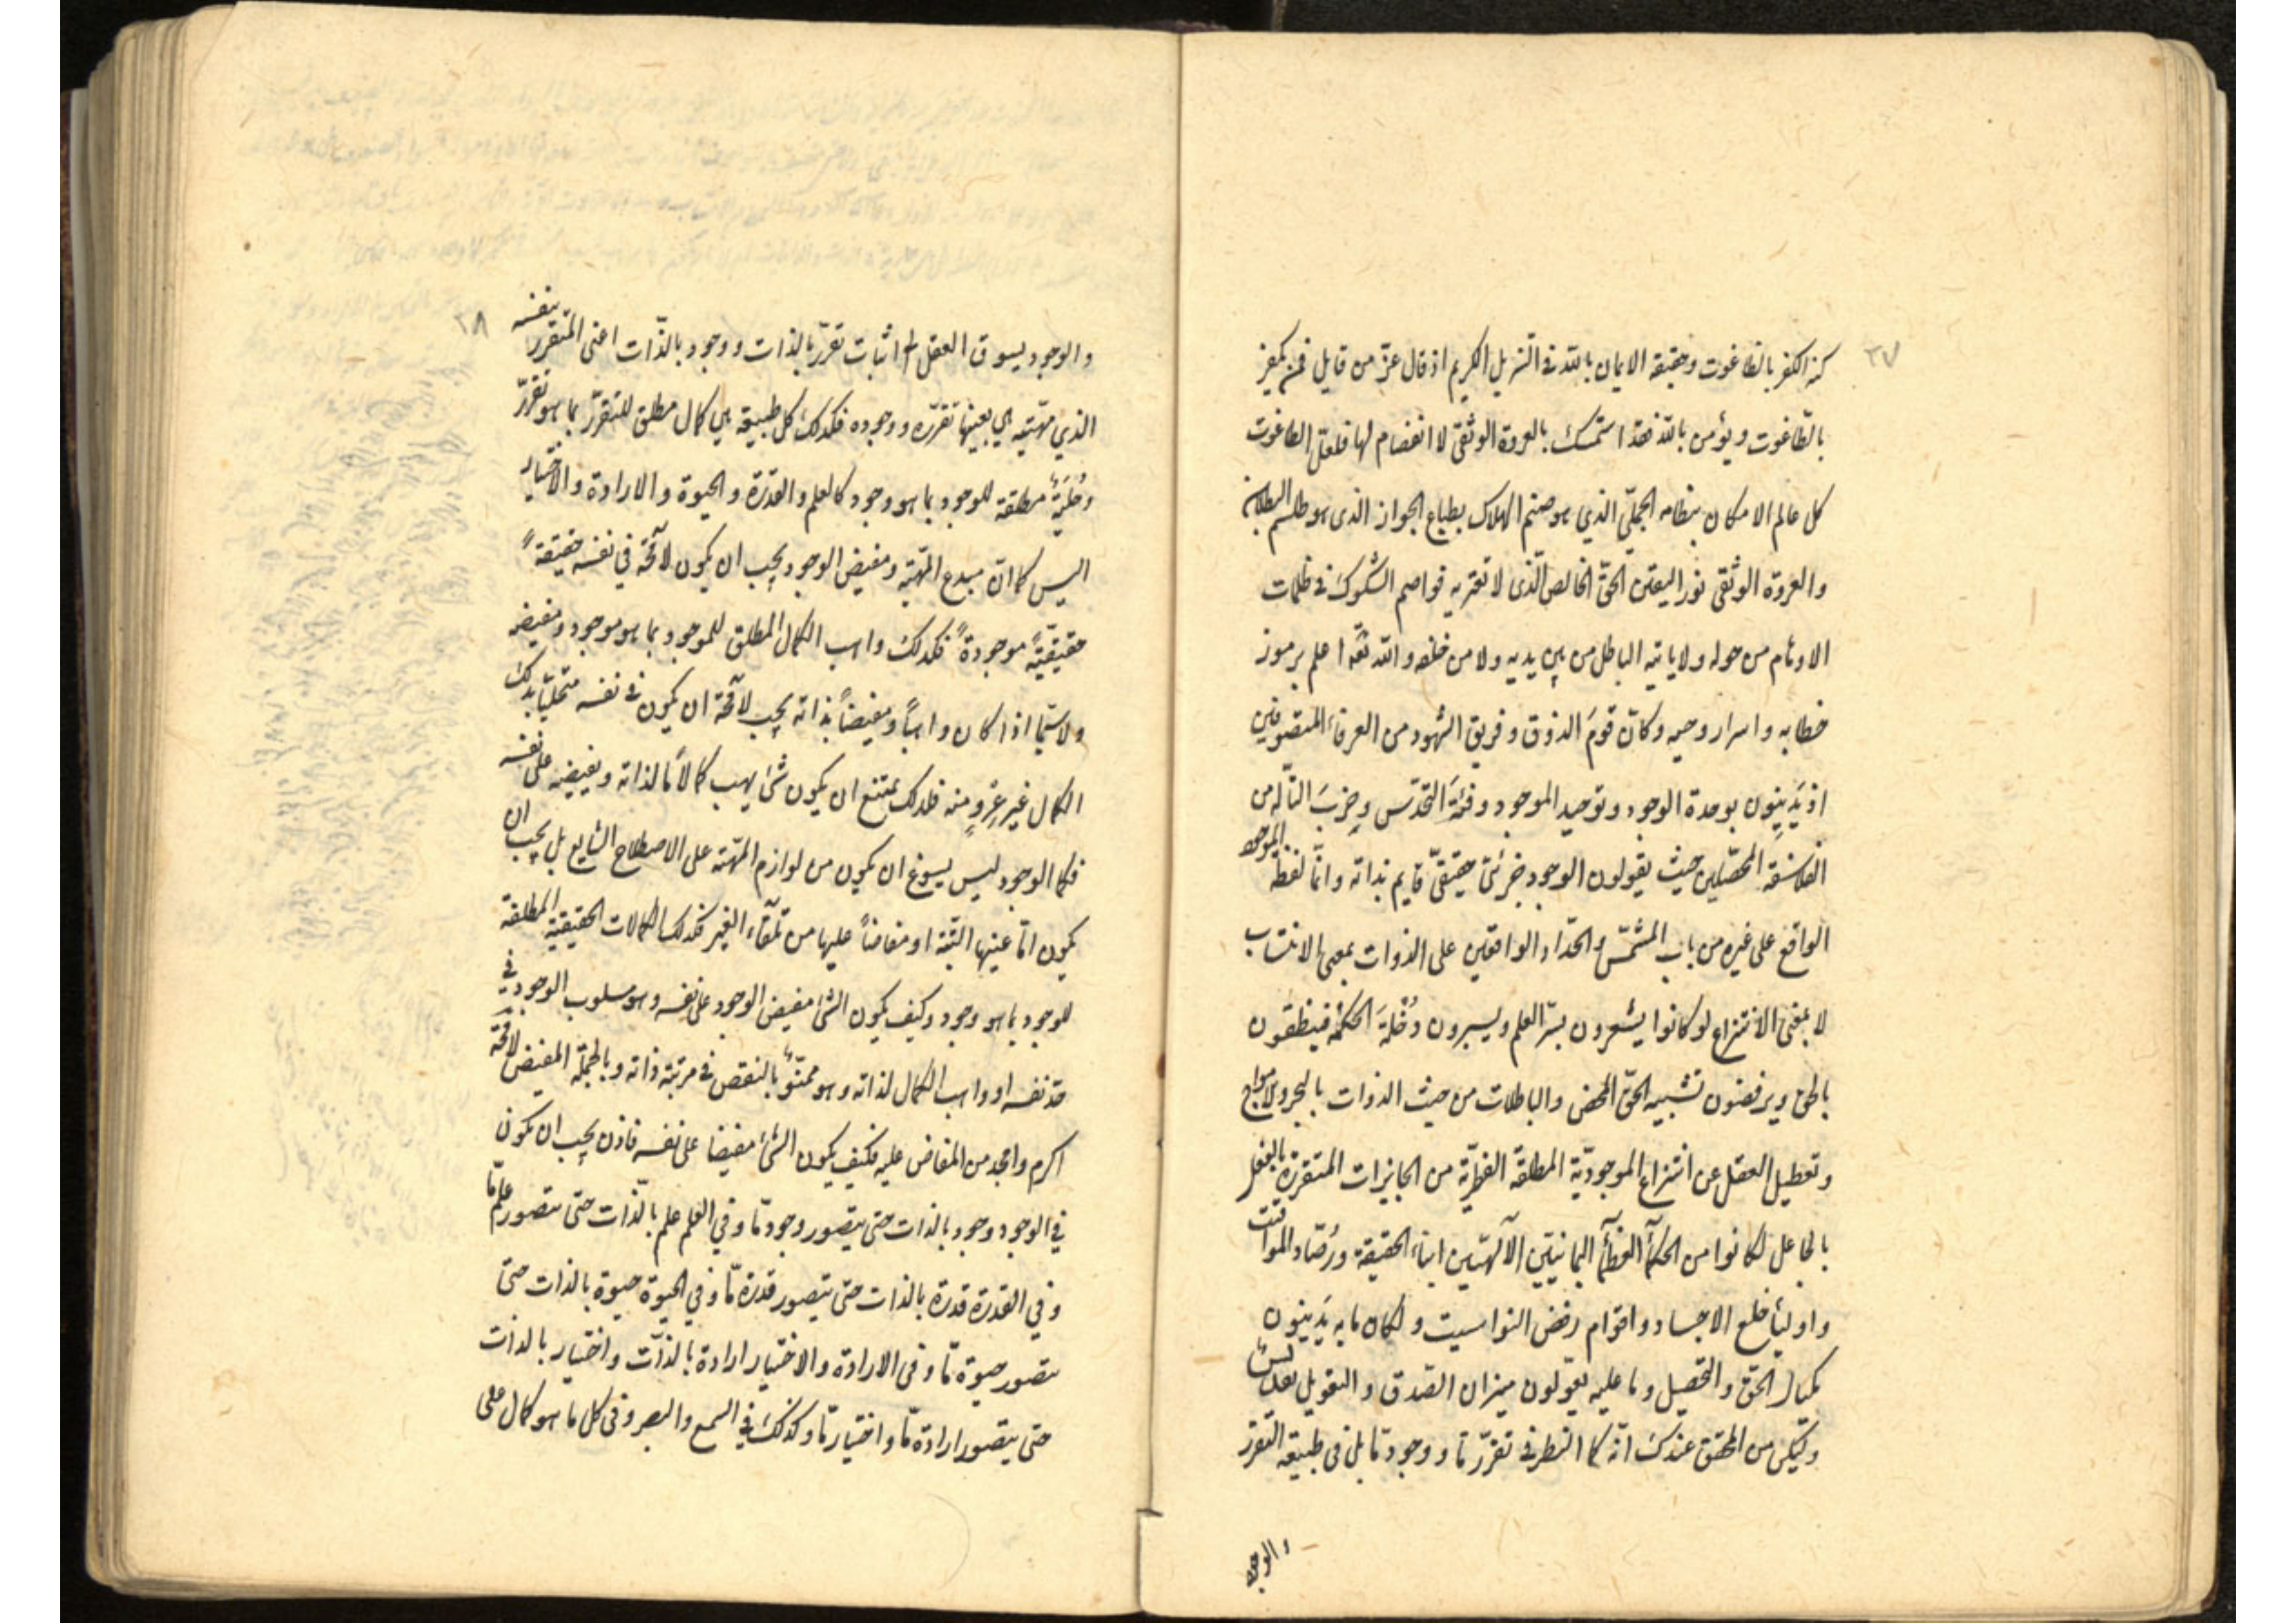 ٢٧
كنه الكفر بالطاغوت وحقيقة الايمان بالله في التنزيل الكريم اذ قال عزّ من قايل فمن يكفر
بالطّاغوت ويؤمن بالله فقد استمسك بالعروة الوثقى لا انفصام لها فلعلّ الطاغوت
كل عالم الامكان بنظامه الجمليّ الذي هو صنم الهلاك بطباع الجواز الذى هو طلسم البطلان
والعروة الوثقى نور اليقين الحقّ الخالص الّذى لا تعتريه قواصم الشكوك في ظلمات
الاوهام من حوله ولا ياتيه الباطل من بين يديه ولا من خلفه والله تعٰ اعلم برموز
خطابه واسرار وحيه وكانّ قومَ الذوق وفريق الشهود من العرفاء المتصوفين
اذ يَدينون بوحدة الوجود وتوحيد الموجود وفئةَ التقدّس وحِزبَ التألّه من
الفلاسفة المحصّلين حيث يقولون الوجود جزئى حقيقىّ قايم بذاته وانّما لفظة الموجود
الواقع على غيره من باب المشمّس والحدّاد الواقعين على الذوات بمعنى الانتساب
لا بمعنى الانتزاع لو كانوا يشعرون بسرّ العلم ويسبرون دُخلَةَ الحكمة فينطقون
بالحق ويرفضون تشبيه الحقّ المحض والباطلات من حيث الذوات بالبحر والامواج
وتعطيل العقل عن انتزاع الموجوديّة المطلقة الفطريّة من الجايزات المتقررة بالفعل
بالجاعل لكانوا من الحكمآء العظمآء اليمانيّين الآلهيّين ابناء الحقيقة ورُصّاد المواقيت
واولياء خلع الاجساد واقوام رفض النواسيت ولكان ما به يَدينون
مكيال الحق والتحصيل وما عليه يعوّلون ميزان الصّدق والتعويل
وليكن من المحقق عندك انّه كما النظر في تقرّر مّا ووجود مّا بل فى طبيعة التقرّر
والوجود
٢٨
والوجود يسوق العقل الى اثبات تقرّر بالذات ووجود بالذّات اعنى المتقرر بنفسه
الذي مهيّته هي بعينها تقرّره ووجوده فكذلك كل طبيعة هي كمال مطلق للتقرّر بما هو تقرّر
وحِليَة مطلقة للوجود بما هو وجود كالعلم والقدرة والحيوة والارادة والاختيار
اليس كما انّ مبدع المهيّة ومفيض الوجود يجب ان يكون لا محٰة في نفسه حقيقةً
حقيقيّةً موجودةً فكذلك واهب الكمال المطلق للموجود بما هو موجود ومفيضه
ولا سيّما اذا كان واهباً ومفيضاً بذاته يجب لا محٰة ان يكون في نفسه متحلّياً بذلك
الكمال غير عِروٍ منه فلذلك يمتنع ان يكون شئ يهب كمالاً ما لذاته ويفيضه على نفسه
فكما الوجود ليس يسوغ ان يكون من لوازم المهيّة على الاصطلاح الشايع بل يجب ان
يكون امّا عينها البتّة او مفاضاً عليها من تلقاء الغير فكذلك الكمالات الحقيقية المطلقة
للوجود بما هو وجود وكيف يكون الشئ مفيض الوجود على نفسه وهو مسلوب الوجود في
حدّ نفسه او واهب الكمال لذاته وهو ممنوّ بالنقص في مرتبة ذاته وبالجملة المفيض لا محٰة
اكرم وامجد من المفاض عليه فكيف يكون الشئ مفيضا على نفسه فاذن يجب ان يكون
في الوجود وجود بالذات حتى يتصور وجود مّا وفي العلم علم بالذّات حتى يتصور علم مّا
وفي القدرة قدرة بالذات حتى يتصور قدرة مّا وفي الحيوة حيوة بالذات حتى
يتصور حيوة مّا وفى الارادة والاختيار ارادة بالذّات واختيار بالذات
حتى يتصور ارادة مّا واختيار مّا وكذلك في السمع والبصر وفى كل ما هو كمال على